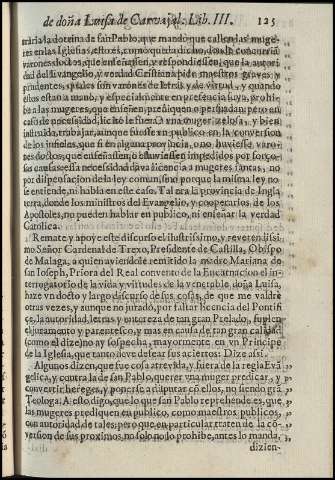 de doña Luisa de Carvajal: Lib. III. 125
traria la dotrina de san Pablo, que mandò que callen las muge-
res en las Iglesias, esto es, como queda dicho, donde concurren
varones doctos, que enseñassen, y respondiessen: que la autori-
dad del Evangelio, y verdad Cristiana pide maestros graves, y
prudentes, quales son varones de letras, y de virtud, y quando
ellos estan à mano, y especialmente en presencia suya, prohi-
be a las mugeres, que enseñen, prediquen, o persuadan; pero en
caso de necessidad, licito le fuera a una muger zelosa, y bien
instruida, trabajar, aunque fuesse en publico en la conversion
de los infieles, que si en alguna provincia, o no huviesse varo-
nes doctos, que enseñassen, ò estuviessen impedidos por forço-
sas causas: essa necessidad dava licencia a mugeres santas, no
por dispensacion de la ley comun, sino porque la misma ley no
se entiende, ni habla en este caso. Tal era la provincia de Ingla
terra, donde los ministros del Evangelio, y cooperarios de los
Apostoles, no pueden hablar en publico, ni enseñar la verdad
Catolica.
Remate, y apoye este discurso el Ilustrissimo, y reverendissi-
mo Señor Cardenal de Trexo, Presidente de Castilla, Obispo
de Malaga, a quien aviendole remitido la madre Mariana de
san Ioseph, Priora del Real convento de la Encarnacion el in-
terrogatorio de la vida y virtudes de la venerable doña Luisa,
haze un docto y largo discurso de sus cosas, de que me valdrè
otras vezes, y aunque no jurado, por faltar licencia del Pontifi
ce, la autoridad, letras, y entereza de tan gran Prelado, suplen
el juramento y parentesco, y mas en causa de tan gran calidad
(como el dize) no ay sospecha, mayormente en un Principe
de la Iglesia, que tanto deve desear sus aciertos: Dize assi.
Algunos dizen, que fue cosa atrevida, y fuera de la regla Eva
gelica, y contra la de san Pablo, querer una muger predicar, y
convertir hereges, y ponerse a disputar cõ ellos, no siendo grã
Teologa. A esto digo, que lo que san Pablo reprehende es, que
las mugeres prediquen en publico, como maestros publicos,
con autoridad de tales; pero que en particular traten de la cõ-
version de sus proximos, no solo no lo prohibe, antes lo manda,
dizien-